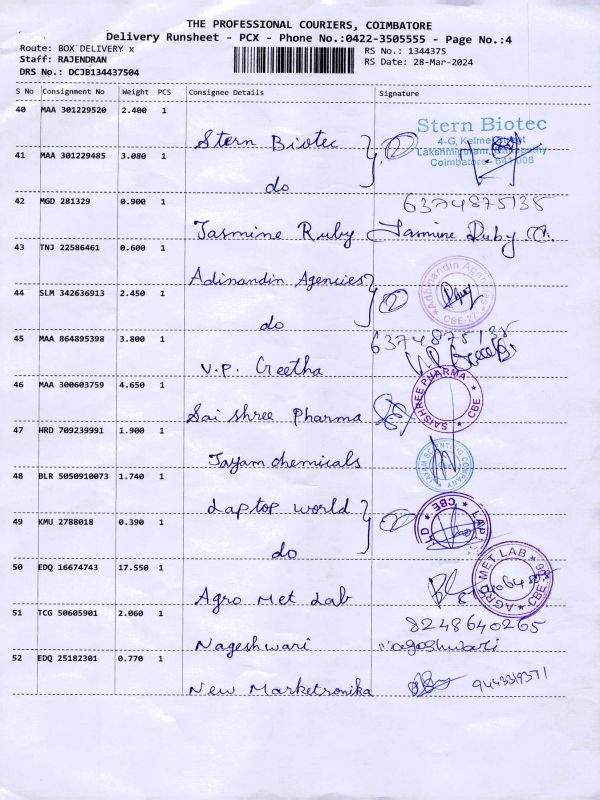 THE PROFESSIONAL COURIERS, COIMBATORE
Delivery Runsheet - PCX - Phone No.:0422-3505555 - Page No.:4
Route: BOX DELIVERY x
RS No.: 1344375
Staff: RAJENDRAN
RS Date: 28-Mar-2024
DRS No.: DCJB134437504
S No Consignment No Weight PCS Consignee Details Signature
40 MAA 301229520 2.400 1
Stern Biotec
Stern Biotec
4-G, Kelme
Coimbatore - 641 006
41 MAA 301229485 3.080 1
do
42 MGD 281329 0.900 1
6374875138
Jasmine Ruby Jasmine Ruby
43 TNJ 22586461 0.600 1
Adinandin Agencies
CBE-27
44 SLM 342636913 2.450 1
do
45 MAA 864895398 3.800 1
6374875138
V.P. Geetha
46 MAA 300603759 4.650 1
Sai shree Pharma
SAISHREE PHARMA
CBE
47 HRD 709239991 1.900 1
Jayam chemicals
JAYAM SCIENTIFIC COMPANY
48 BLR 5050910073 1.740 1
Laptop world
CBE
49 KMU 2788018 0.390 1
do
50 EDQ 16674743 17.550 1
Agro Met Lab
AGRO MET LAB
CBE
51 TCG 50605901 2.060 1
8248640265
Nageshwari
52 EDQ 25182301 0.770 1
New Marketronika